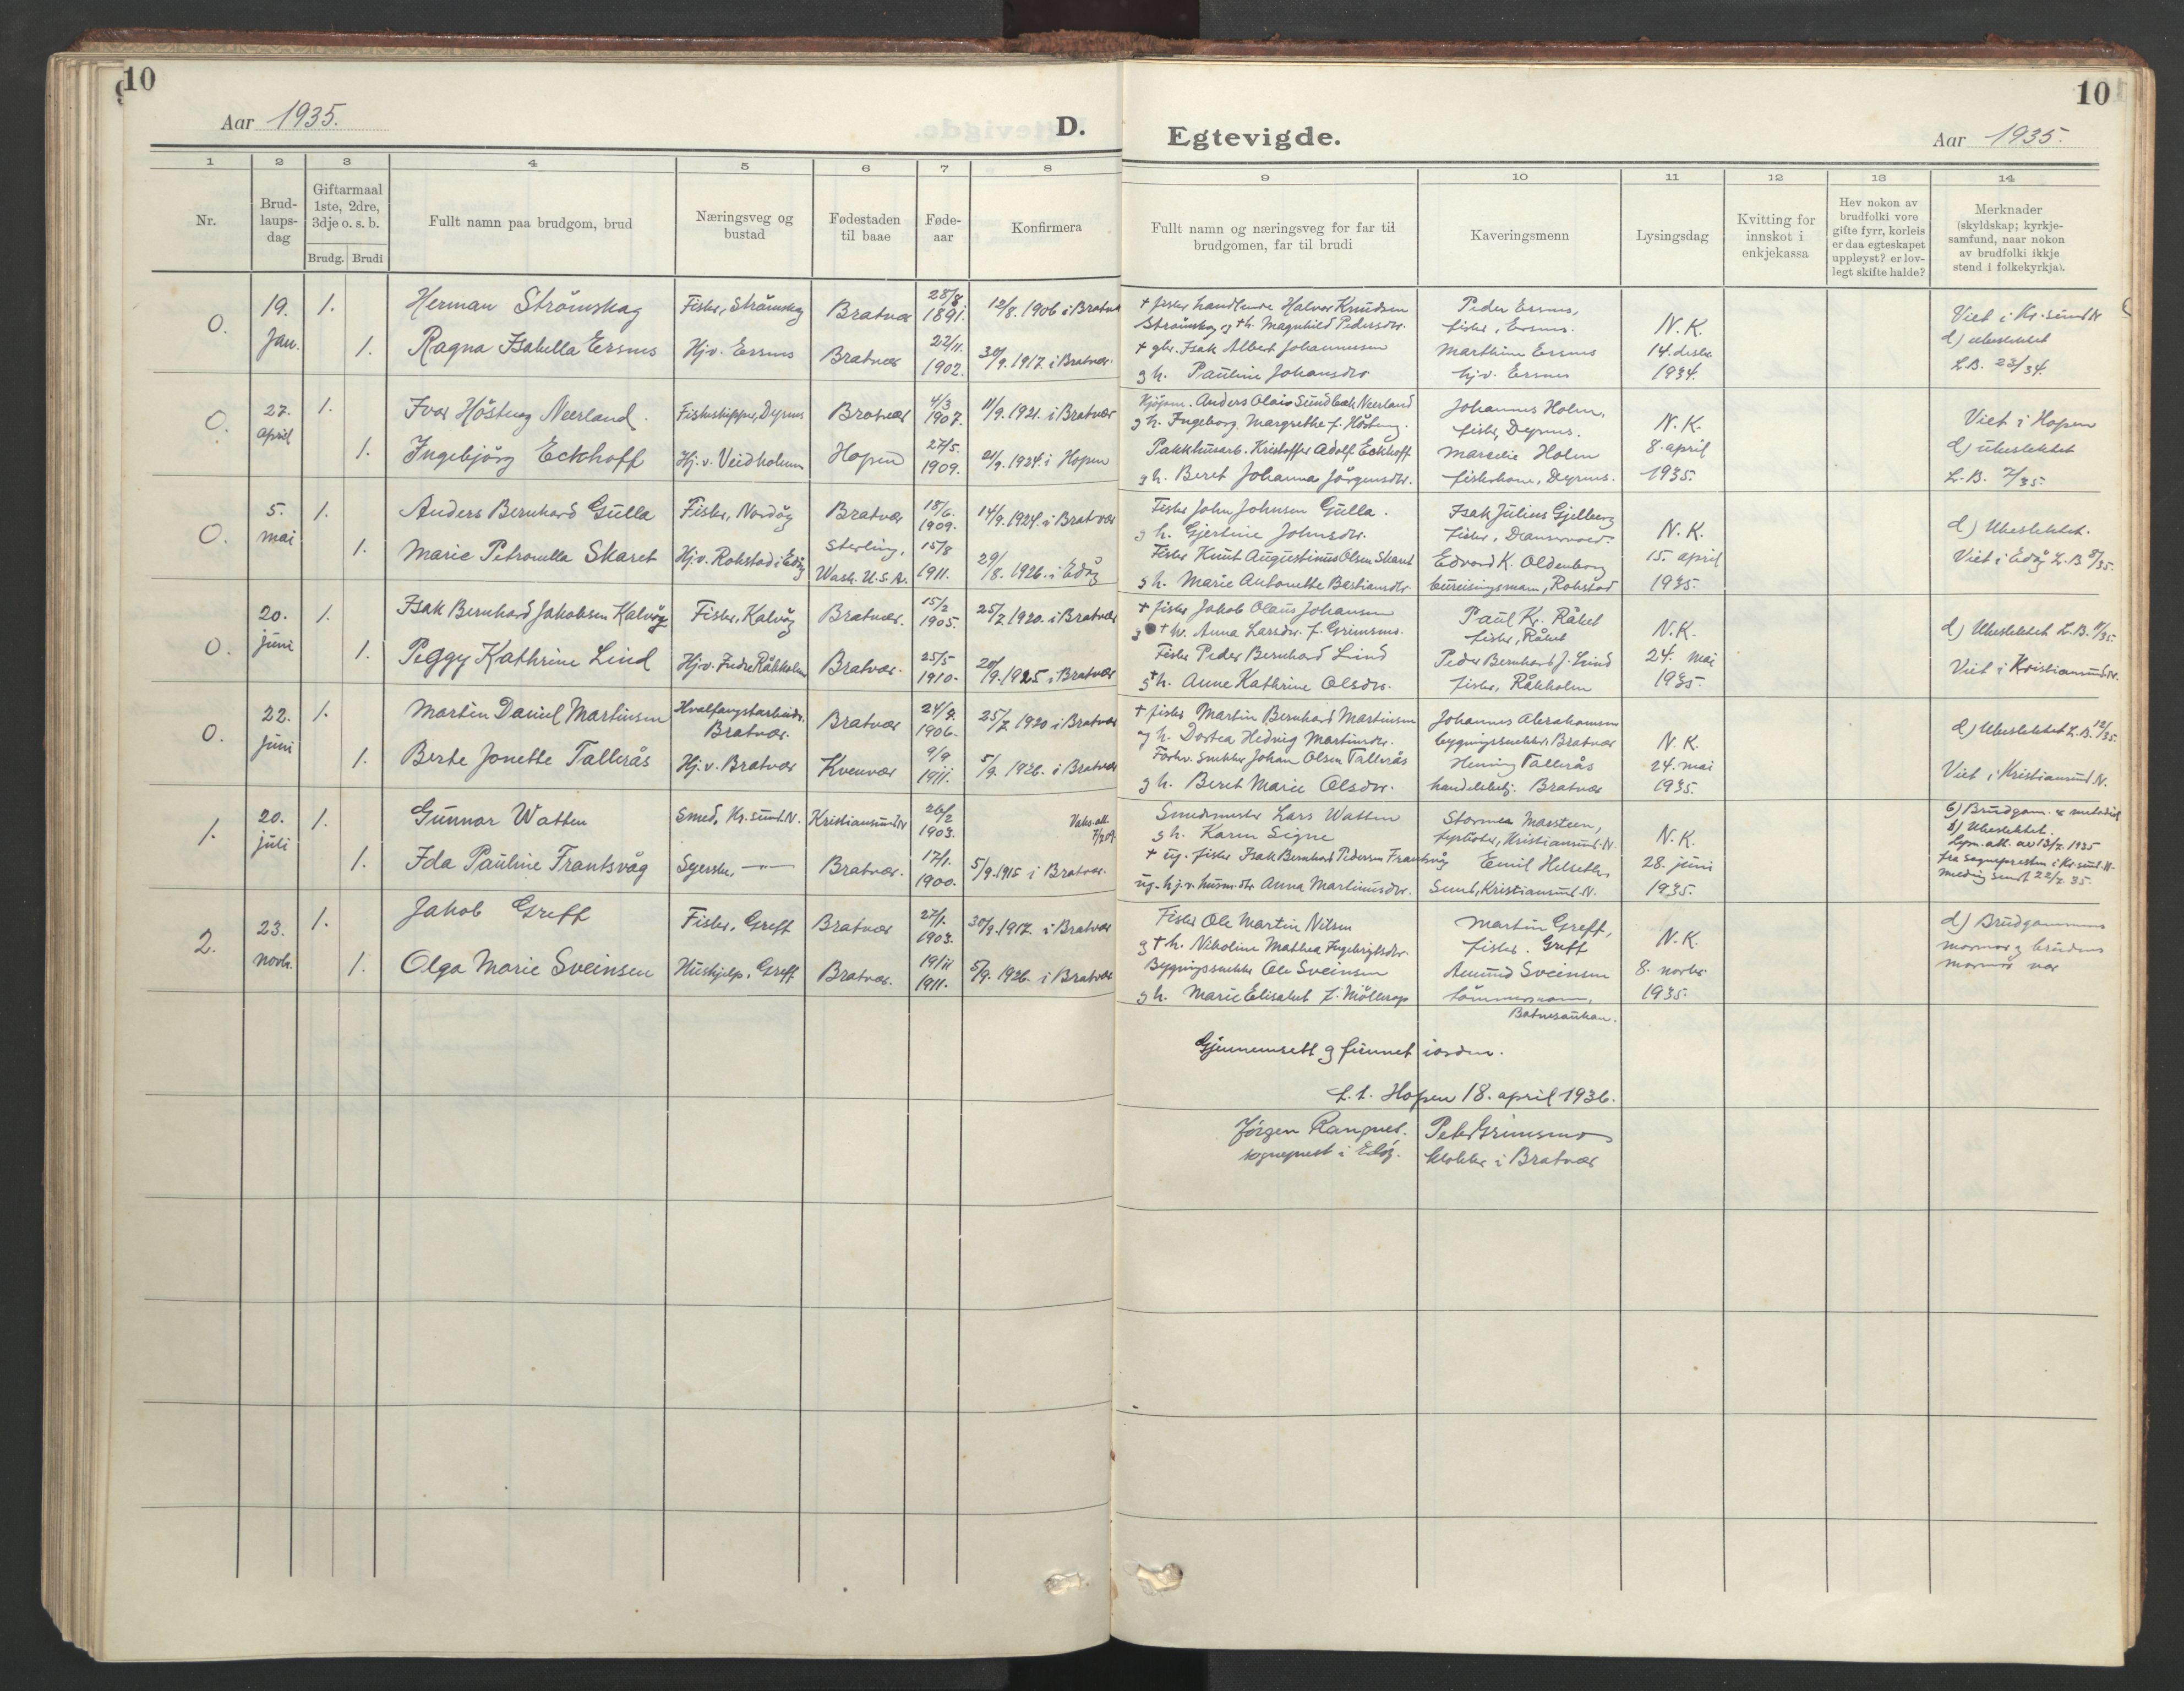 10
Aar 1935.
D.
1 2 3 4 5 6 7 8
Nr.
Brud-
laups-
dag
Giftarmaal
1ste, 2dre,
3dje o. s. b.
Brudg. Brudi
Fullt namn paa brudgom, brud
Næringsveg og
bustad
Fødestaden
til baae
Føde-
aar
Konfirmera
0. 19. Jan. 1. Herman Strömskag Fisker, Strömskag Bratvær 28/8 1891. 12/8. 1906 i Bratvær
1. Ragna Isabella Ersnes Hjv. Ersnes Bratvær 22/11. 1902. 30/9. 1917. i Bratvær.
0. 27. april 1. Ivar Höstmg Neerland. Fiskeskipper, Dyrnes Bratvær 4/3 1907. 11/9. 1921. i Bratvær
1. Ingebjörg Eckhoff Hj.v. Veidholmen Hopen 27/5. 1909. 21/9. 1924. i Hopen
0. 5. mai 1. Anders Bernhard Gulla Fisker, Nordøy Bratvær 18/6. 1909. 14/9. 1924. i Bratvær
1. Marie Petronella Skaret Hj.v. Rokstad i Edøy Sterling, Wash. U.S.A. 15/8 1911. 29/8. 1926. i Edøy
0. 20. juni 1. Isak Bernhard Jakobsen Kalvøy Fisker, Kalvøy Bratvær. 15/2 1905. 25/7 1920. i Bratvær
1. Peggy Kathrine Lind Hjv. Indre Råkholm Bratvær. 25/5 1910. 20/9. 1925 i Bratvær
0. 22. juni 1. Martin Daniel Martinsen Hvalfangstarbeider. Bratvær. Bratvær 24/9. 1906. 25/7 1920 i Bratvær
1. Berte Jonette Tallerås Hj.v. Bratvær Kvenvær 9/9 1911. 5/9. 1926. i Bratvær
1. 20. juli 1. Gunnar Watten Smed, Kr.sund.N. Kristiansund N 26/2 1903.
1. Ida Pauline Frantsvåg Syerske, —"— Bratvær. 17/1. 1900. 5/9. 1915 i Bratvær.
2. 23. novb. 1. Jakob Greff Fisker, Greft Bratvær 27/1. 1903. 30/9. 1917. i Bratvær
1. Olga Marie Sveinsen Hushjelp, Greff Bratvær. 19/11 1911. 5/9. 1926. i Bratvær
10
Egtevigde.
Aar 1935.
9 10 11 12 13 14
Fullt namn og næringsveg for far til
brudgomen, far til brudi
Kaveringsmenn
Lysingsdag
Kvitting for
innskot i
enkjekassa
Hev nokon av
brudfolki vore
gifte fyrr, korleis
er daa egteskapet
uppløyst? er lov-
legt skifte halde?
Merknader
(skyldskap; kyrkje-
samfund, naar nokon
av brudfolki ikkje
stend i folkekyrkja).
+ fisker handlende Halvor Knudsen Peder Ersnes, Viet i Kr.sund N
Strömskag og +h. Magnhild Pedersdtr. fisker, Ersnes. N.K. d) Ubeslektet
+ gbr. Isak Albert Johannessen Marthine Ersnes 14. desbr. L.B. 23/34.
g h. Pauline Johansdtr. hj.v. Ersnes 1934.
Anders Olais Sundbak Neerland Johannes Holm,
g h. Ingeborg Margrethe f. Höstmg. fisker, Dyrnes. N.K. Viet i Hopen
Pakkhusarb. Kristoffer Adolf Eckhoff Marselie Holm 8. april d) Ubeslektet
g h. Beret Johanna Jörgensdtr. fiskerkone, Dyrnes. 1935. L.B. 7/35.
Fisker John Johnsen Gulla. Isak Julius Gjelberg
g h. Gjertine Johnsdtr. fisker, N.K. d) Ubeslektet.
Fisker Knut Augustinus Olsen Skaret Edvard K. Oldenborg 15. april Viet i Edøy L.B 8/35.
g h. Marie Antonette Bastiansdtr. bureisingsmann, Rokstad 1935.
+ fisker Jakob Olaus Johansen Paul Kr. Råket
g + h. Anna Larsdtr. f. Grimsmo. fisker, Råket N.K. d) Ubeslektet L.B. 11/35.
Fisker Peder Bernhard Lind Peder Bernhard J. Lind 24. mai Viet i Kristiansund N.
g +h. Anne Kathrine Olsdtr. fisker, Råkholm 1935.
+ fisker Martin Bernhard Martinsen Johannes Abrahamsen
og h. Dortea Hedvig Martinsdtr. bygningssnekker. Bratvær N.K. d) Ubeslektet L.B. 12/35.
Forhv. snekker Johan Olsen Tallerås Henning Tallerås 24. mai Viet i Kristiansund N.
g h. Beret Marie Olsdtr. handelsbetj. Bratvær 1935.
Smedmester Lars Watten Stormea Marsteen, b) Brudgom. er metodist
g h. Karen Signe fyrbøter, Kristiansund N. N.K. d) Ubeslektet.
+ ug. fisker Isak Bernhard Pedersen Frantsvåg Emil Helseth, 28. juni Lysn. att. av 13/7. 1935
ug. hj.v. husm.dtr. Anna Martinusdtr. Smed, Kristiansund N. 1935. fra sognepresten i Kr.sund N. melding sendt 22/7. 35.
Fisker Ole Martin Nilsen Martin Greff, d) Brudgommens
g + h. Nikoline Mathea Ingebrigtsdtr. fisker. Greft N.K. mormor og brudens
Bygningssnekker Ole Sveinsen Amund Sveinsen 8. novbr. mormor var
g h. Marie Elisabet f. Möllerop tömmermann, 1935.
Gjennemsett og funnet i orden.
f.t. Hopen 18. april 1936.
Jörgen Rangnes. Peter Grimsmo
sogneprest i Edøy. klokker i Bratvær